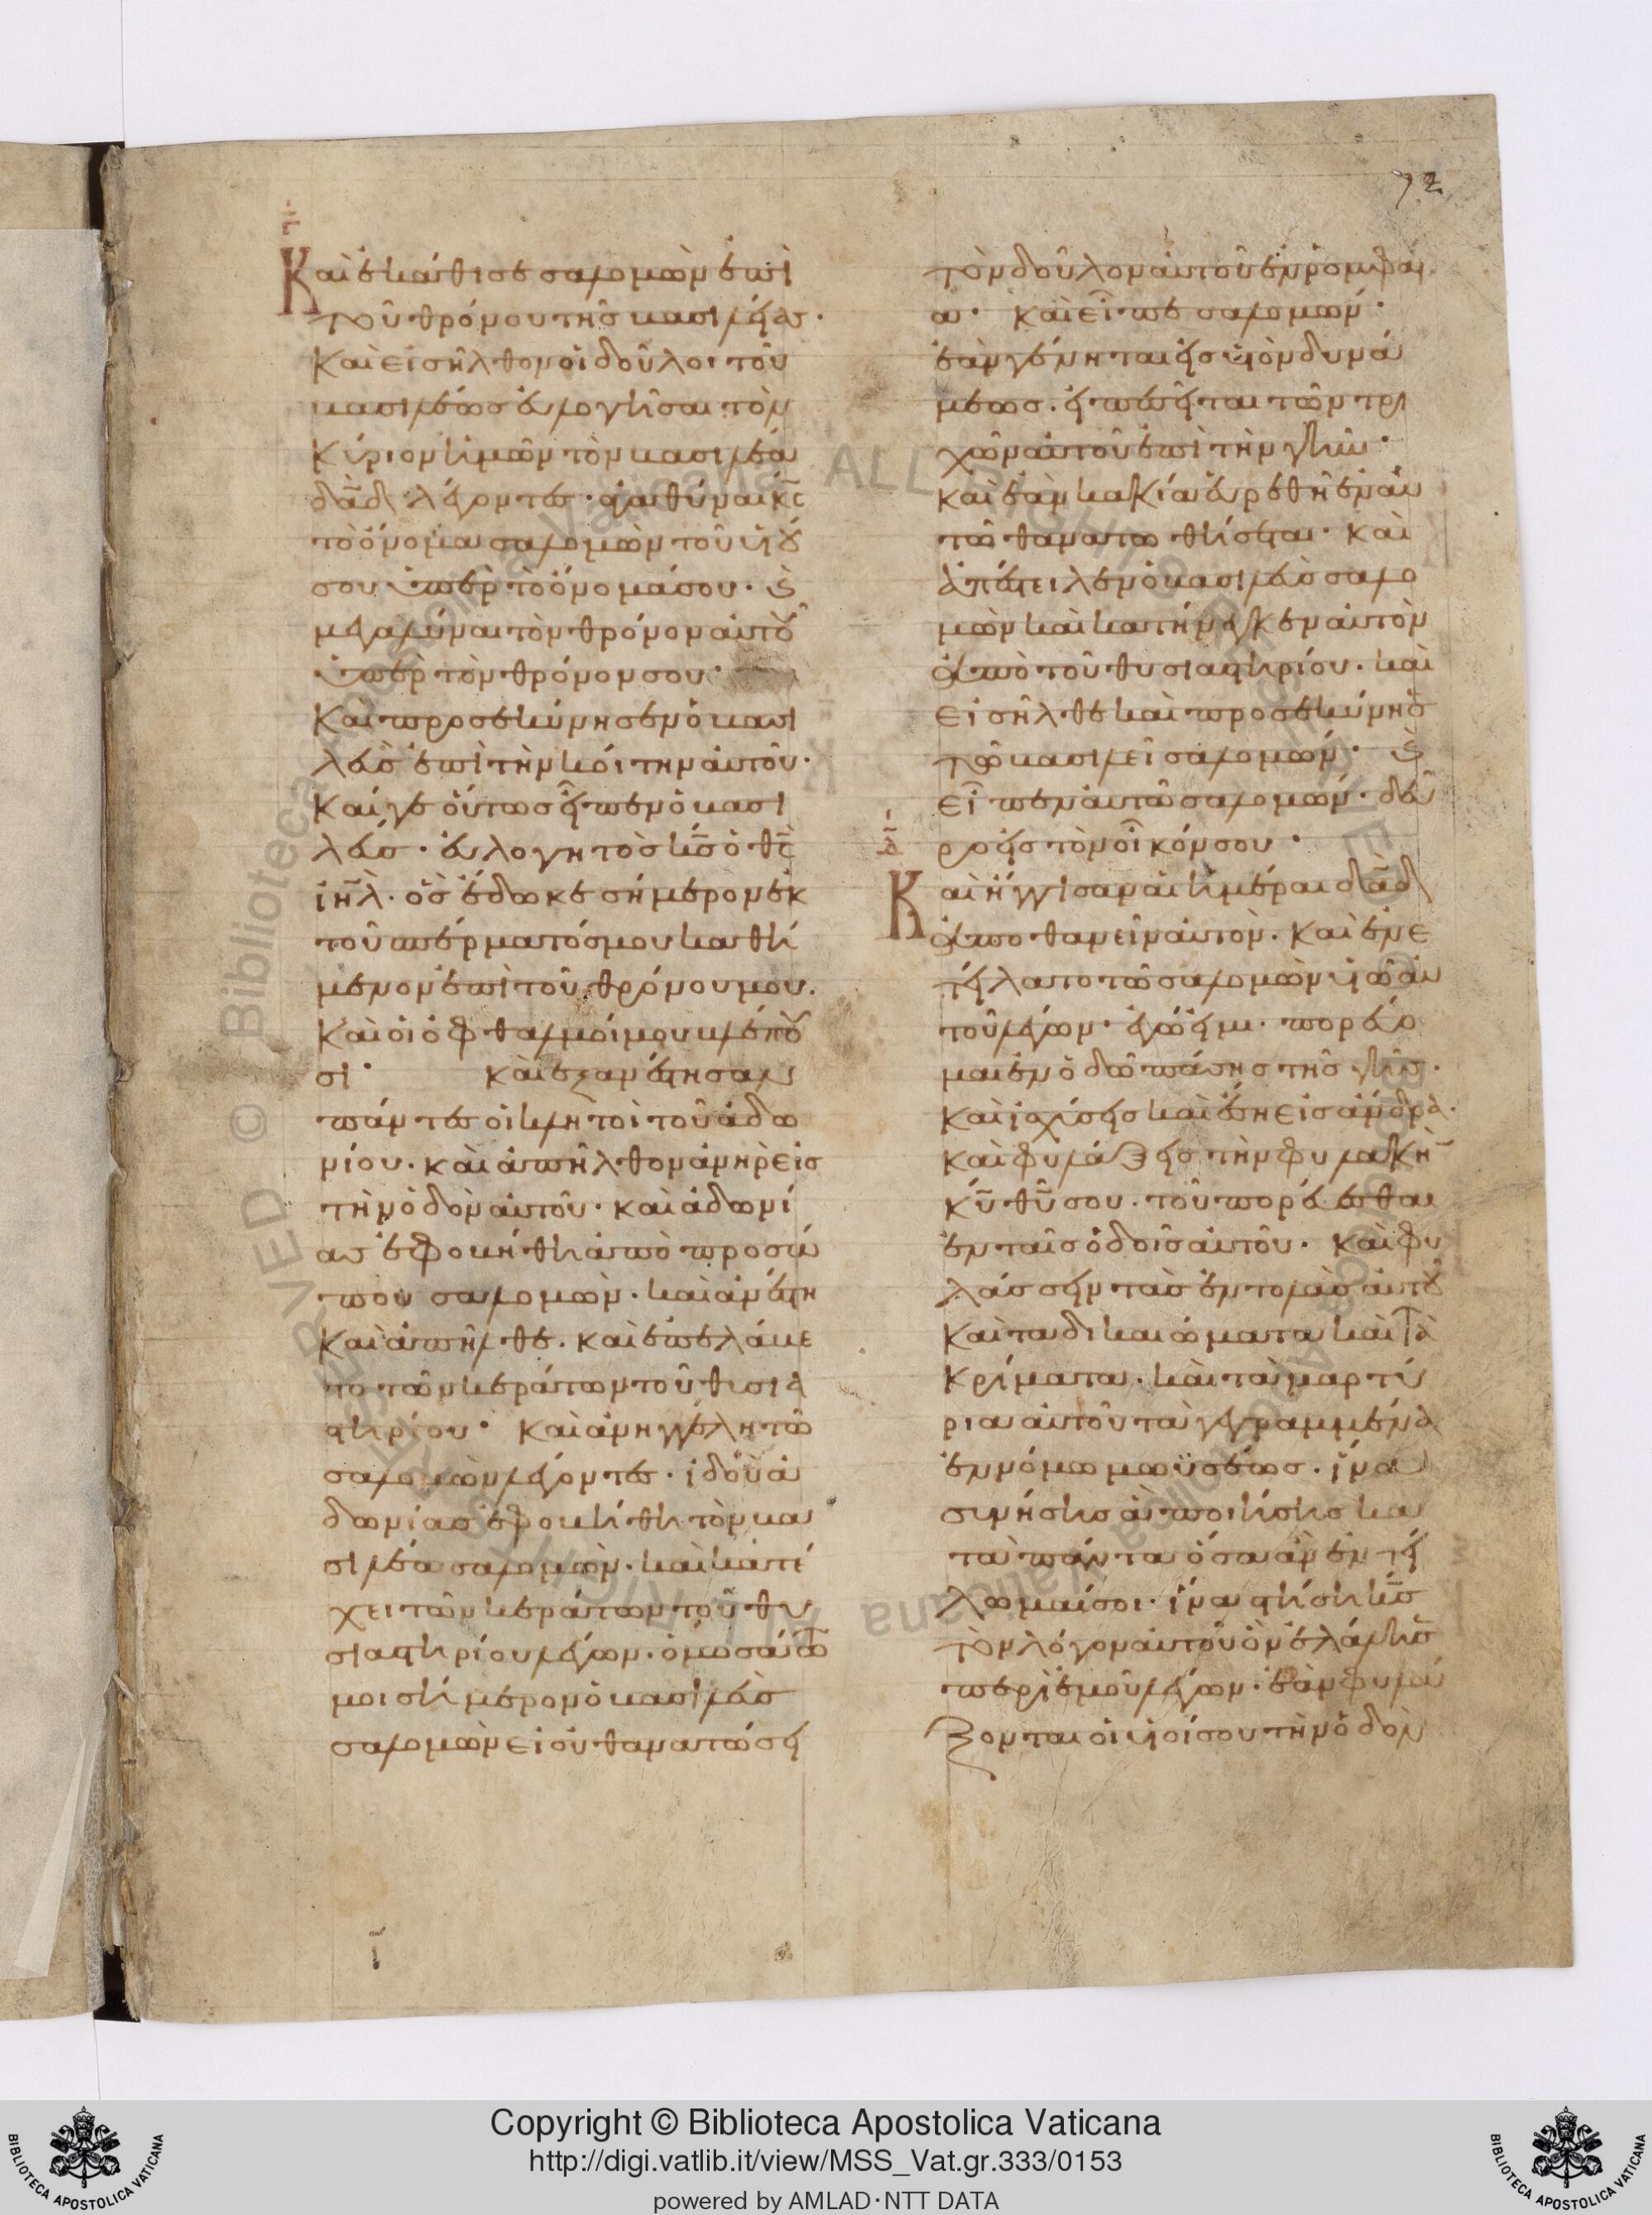 72
γ̄
Καὶ ἐκάθισε σαλομὼν ἐπὶ
τοῦ θρόνου τῆς βασιλείας·
Καὶ εἰσῆλθον οἱ δοῦλοι τοῦ
βασιλέως εὐλογῆσαι τὸν
Κύριον ἡμῶν τὸν βασιλέα
δᾱδ λέγοντες· ἀγαθύναι κ̄ς
τὸ ὄνομα σαλομὼν τοῦ υἱοῦ
σου ὑπὲρ τὸ ὄνομά σου· καὶ
μεγαλύναι τὸν θρόνον αὐτοῦ
ὑπὲρ τὸν θρόνον σου·
Καὶ προσεκύνησεν ὁ βασι
λεὺς ἐπὶ τὴν κοίτην αὐτοῦ·
Καί γε οὕτως εἶπεν ὁ βασι
λεύς· εὐλογητὸς κ̄ς ὁ θ̄ς
ιη̄λ· ὃς ἔδωκε σήμερον ἐκ
τοῦ σπέρματός μου καθή
μενον ἐπὶ τοῦ θρόνου μου.
Καὶ οἱ ὀφθαλμοί μου βλέπου
σι· καὶ ἐξανέστησαν
πάντες οἱ κλητοὶ τοῦ ἀδω
νίου. καὶ ἀπῆλθον ἀνὴρ εἰς
τὴν ὁδὸν αὐτοῦ· καὶ ἀδωνί
ας ἐφοβήθη ἀπὸ προσώ
που σαλομών. καὶ ἀνέστη
Καὶ ἀπῆλθε. καὶ ἐπελάβε
το τῶν κεράτων τοῦ θυσια
στηρίου· Καὶ ἀνηγγέλη τῶ
σαλομὼν λέγοντες· ἰδοὺ ἀ
δωνίας ἐφοβήθη τὸν βα
σιλέα σαλομών. καὶ κατέ
χει τῶν κεράτων τοῦ θυ
σιαστηρίου λέγων. ὀμοσάτω
μοι σήμερον ὁ βασιλεὺς
σαλομὼν εἰ οὐ θανατώσει
τὸν δοῦλον αὐτοῦ ἐν ρομφαί
α· Καὶ εἶπε σαλομών·
ἐὰν γένηται εἰς υἱὸν δυνά
μεως. εἰ πεσεῖται τῶν τρι
χῶν αὐτοῦ ἐπὶ τὴν γῆν·
καὶ ἐὰν κακία εὑρεθῆ ἐν αὐ
τῶ θανατωθήσεται· Καὶ
ἀπέστειλεν ὁ βασιλεὺς σαλο
μὼν καὶ κατήνεγκεν αὐτὸν
ἀπὸ τοῦ θυσιαστηρίου. καὶ
εἰσῆλθε καὶ προσεκύνησε
τῶ βασιλεῖ σαλομών· καὶ
εἶπεν αὐτῶ σαλομών. δεῦ
ρο εἰς τὸν οἶκόν σου·
δ̄
Καὶ ἤγγισαν αἱ ἡμέραι δᾱδ
ἀποθανεῖν αὐτόν. Καὶ ἐνε
τείλατο τῶ σαλομὼν υἱῶ αὐ
τοῦ λέγων· ἐγώ εἰμι πορεύο
μαι ἐν ὁδῶ πάσης τῆς γῆς.
Καὶ ἰσχύσεις καὶ ἔση εἰς ἄνδρα.
Καὶ φυλάξεις τὴν φυλακὴν
κ̄υ θ̄υ σου. τοῦ πορεύεσθαι
ἐν ταῖς ὁδοῖς αὐτοῦ. Καὶ φυ
λάσσειν τὰς ἐντολὰς αὐτοῦ
Καὶ τὰ δικαιώματα καὶ τὰ
κρίματα. καὶ τὰ μαρτύ
ρια αὐτοῦ τὰ γεγραμμένα
ἐν νόμω μωϋσέως. ἵνα
συνήσης ἃ ποιήσης κα
τὰ πάντα ὅσα ἂν ἐντέ
λωμαί σοι· ἵνα στήση κ̄ς
τὸν λόγον αὐτοῦ ὃν ἐλάλησε
περὶ ἐμοῦ λέγων. ἐὰν φυλά
ξονται οἱ υἱοί σου τὴν ὁδὸν
Copyright © Biblioteca Apostolica Vaticana
http://digi.vatlib.it/view/MSS_Vat.gr.333/0153
powered by AMLAD·NTT DATA
BIBLIOTECA APOSTOLICA VATICANA
BIBLIOTECA APOSTOLICA VATICANA